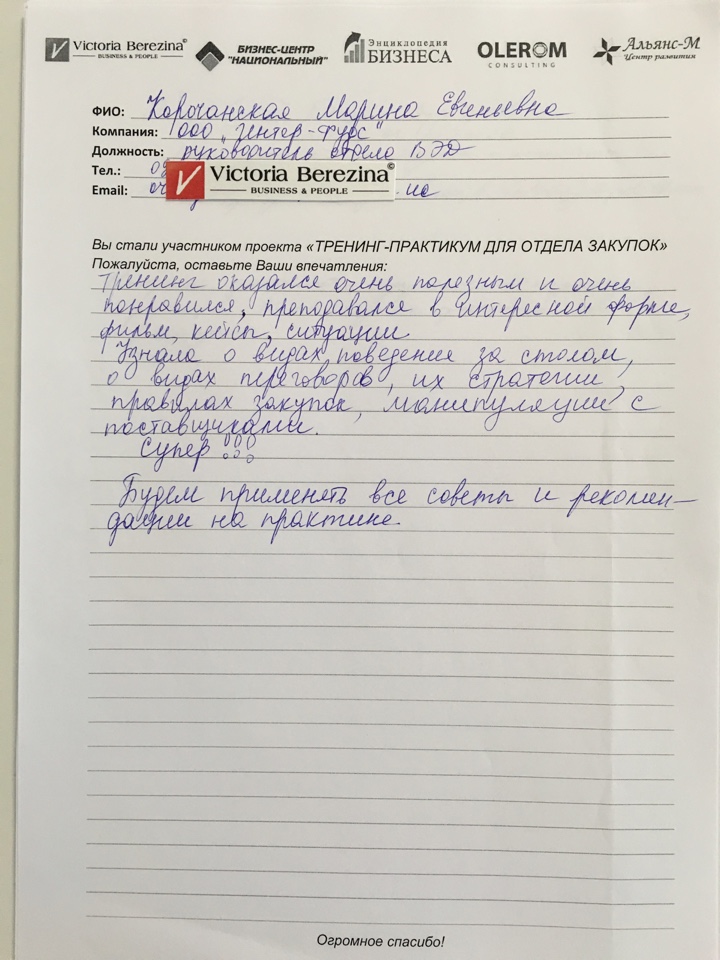 Victoria Berezina© BUSINESS & PEOPLE БИЗНЕС-ЦЕНТР "НАЦИОНАЛЬНЫЙ" Энциклопедия БИЗНЕСА OLEROM CONSULTING Альянс-М Центр развития
ФИО: Корочанская Марина Евгеньевна
Компания: ООО „Интер-Фурс"
Должность: руководитель отдела ВЭД
Тел.:
Victoria Berezina©
BUSINESS & PEOPLE
Email:
Вы стали участником проекта «ТРЕНИНГ-ПРАКТИКУМ ДЛЯ ОТДЕЛА ЗАКУПОК»
Пожалуйста, оставьте Ваши впечатления:
Тренинг оказался очень полезным и очень
понравился, преподавался в интересной форме,
фильм, кейсы, ситуации
Узнала о видах поведение за столом,
о видах переговоров, их стратегии,
правилах закупок, манипуляции с
поставщиками.
Супер !!!
Будем применять все советы и рекомен-
дации на практике.
Огромное спасибо!